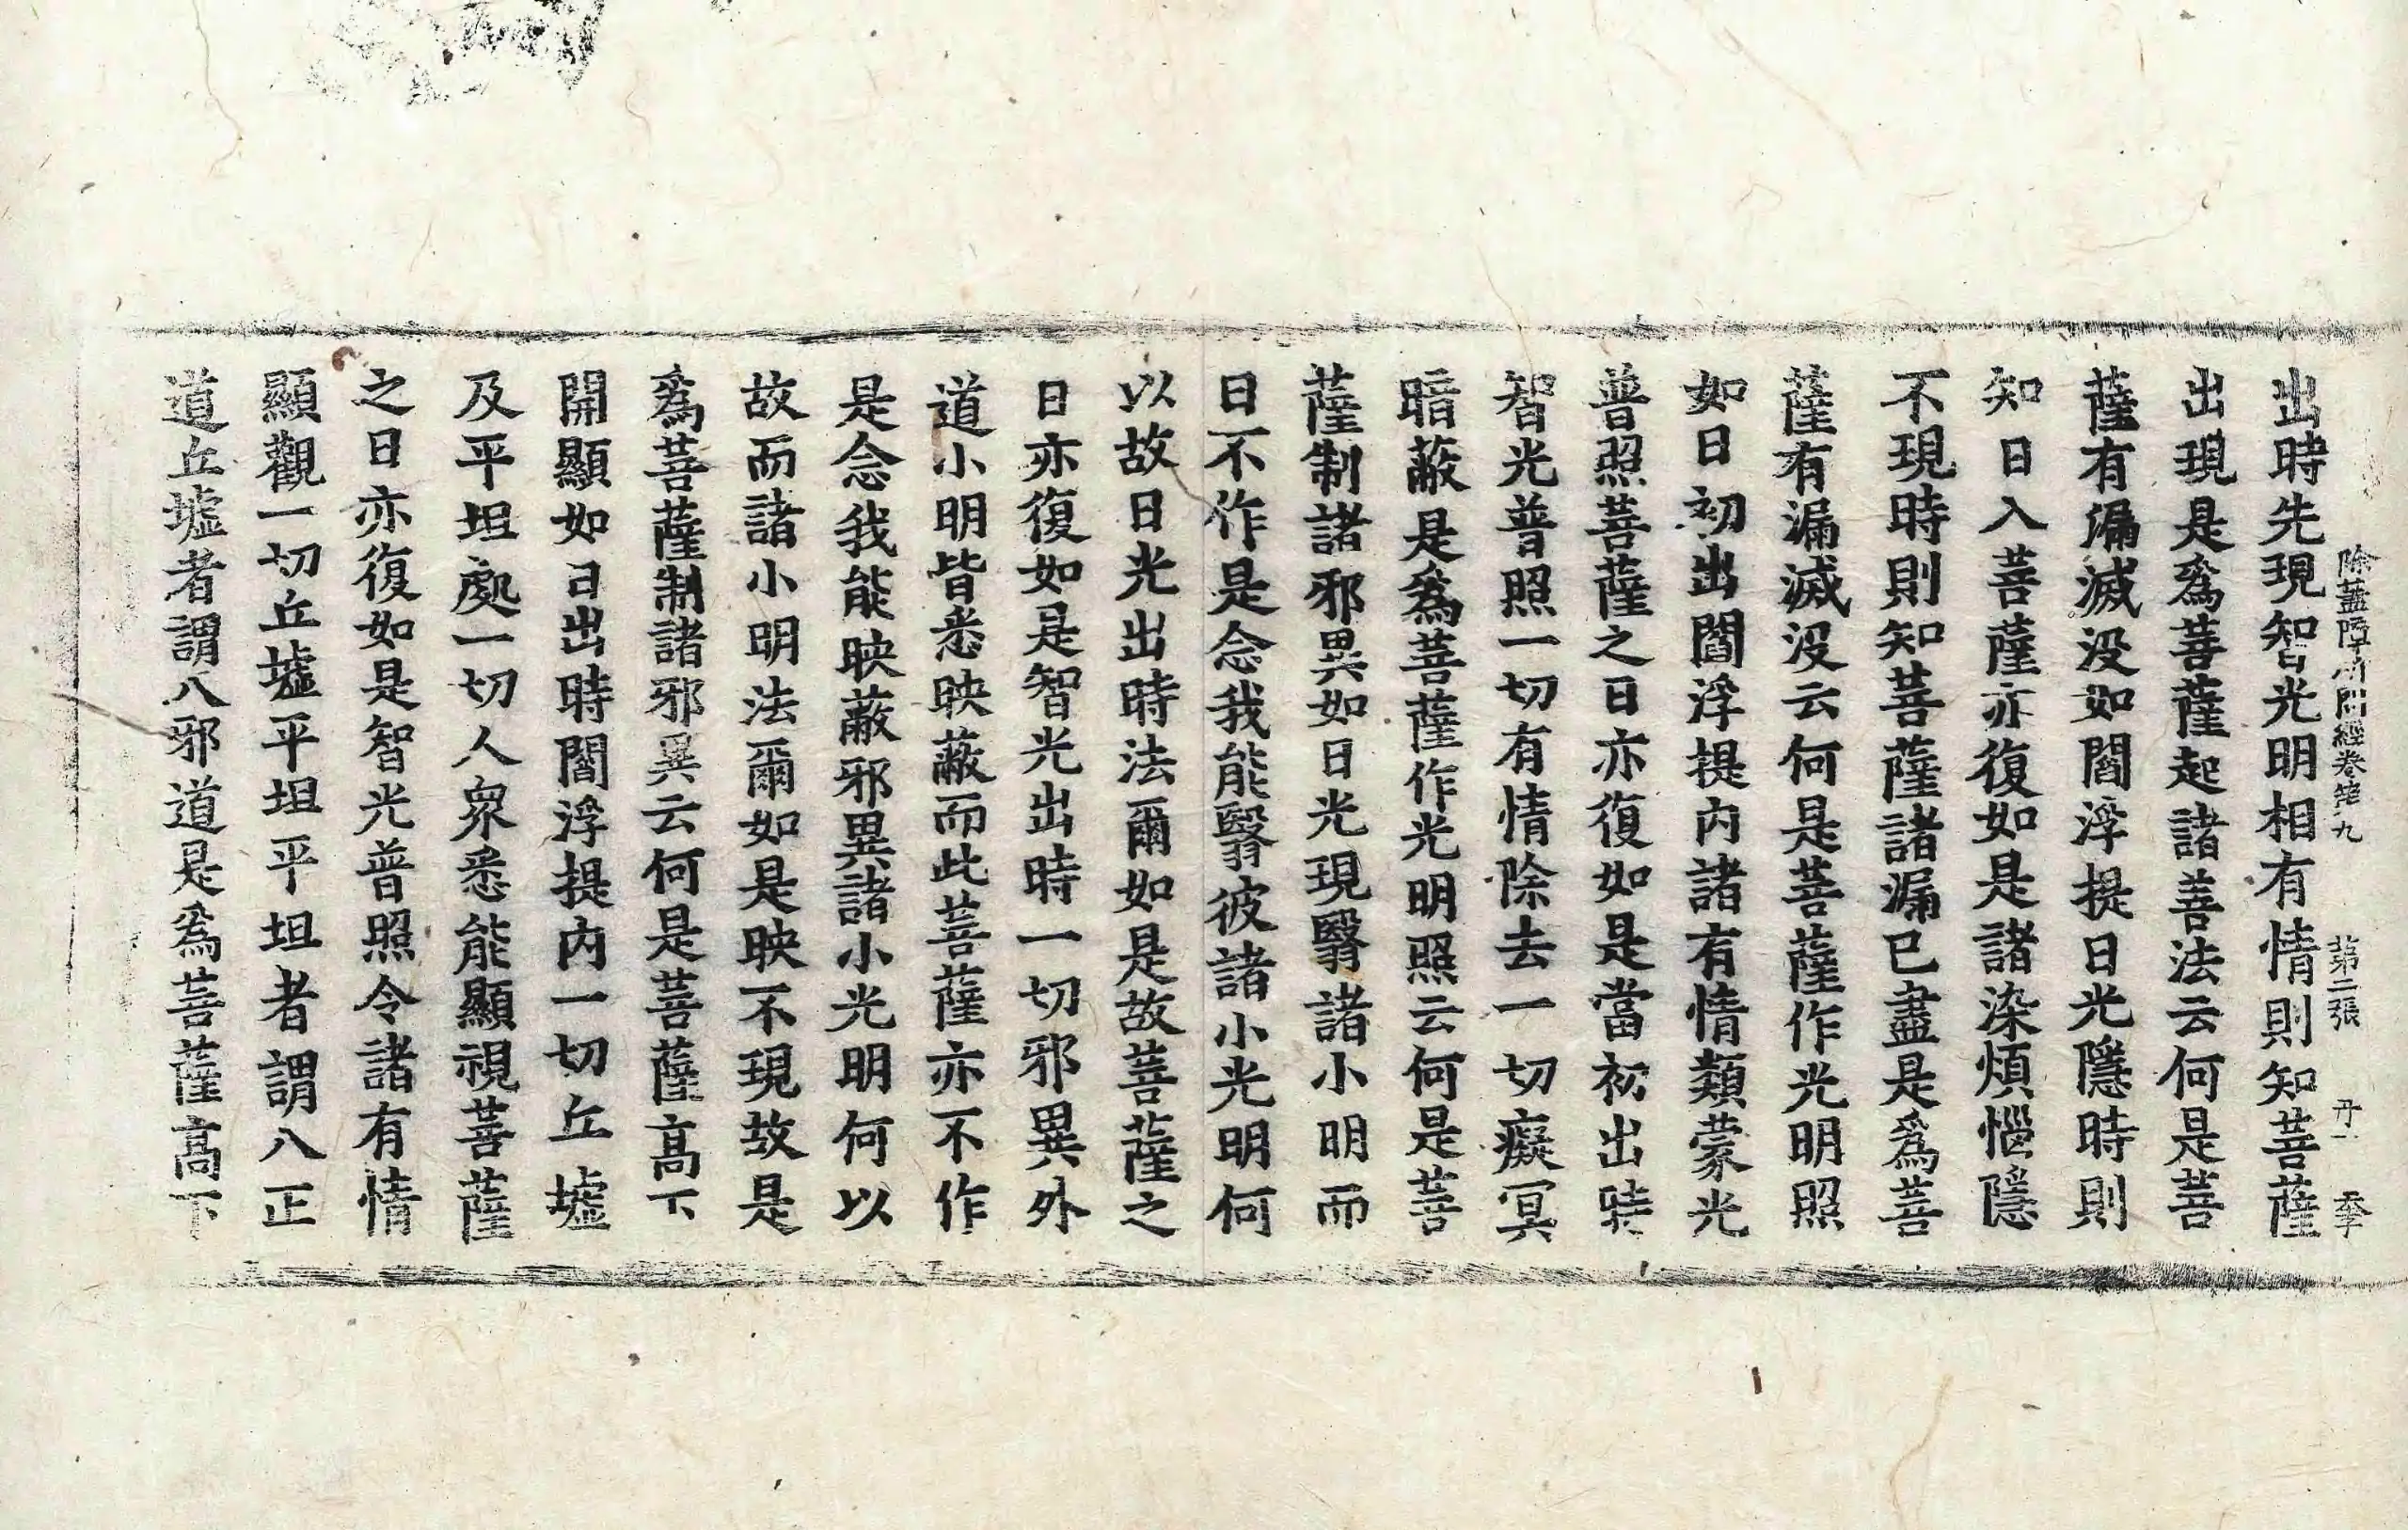 除蓋障所問經卷第九　第二張　丹　一　季
出時先現智光明相有情則知菩薩
出現是爲菩薩起諸善法云何是菩
薩有漏滅沒如閻浮提日光隱時則
知日入菩薩亦復如是諸染煩惱隱
不現時則知菩薩諸漏已盡是爲菩
薩有漏滅沒云何是菩薩作光明照
如日初出閻浮提內諸有情類蒙光
普照菩薩之日亦復如是當初出時
智光普照一切有情除去一切癡冥
暗蔽是爲菩薩作光明照云何是菩
薩制諸邪異如日光現翳諸小明而
日不作是念我能翳彼諸小光明何
以故日光出時法爾如是故菩薩之
日亦復如是智光出時一切邪異外
道小明皆悉映蔽而此菩薩亦不作
是念我能映蔽邪異諸小光明何以
故而諸小明法爾如是映不現故是
爲菩薩制諸邪異云何是菩薩高下
開顯如日出時閻浮提內一切丘墟
及平坦處一切人衆悉能顯視菩薩
之日亦復如是智光普照令諸有情
顯觀一切丘墟平坦平坦者謂八正
道丘墟者謂八邪道是爲菩薩高下